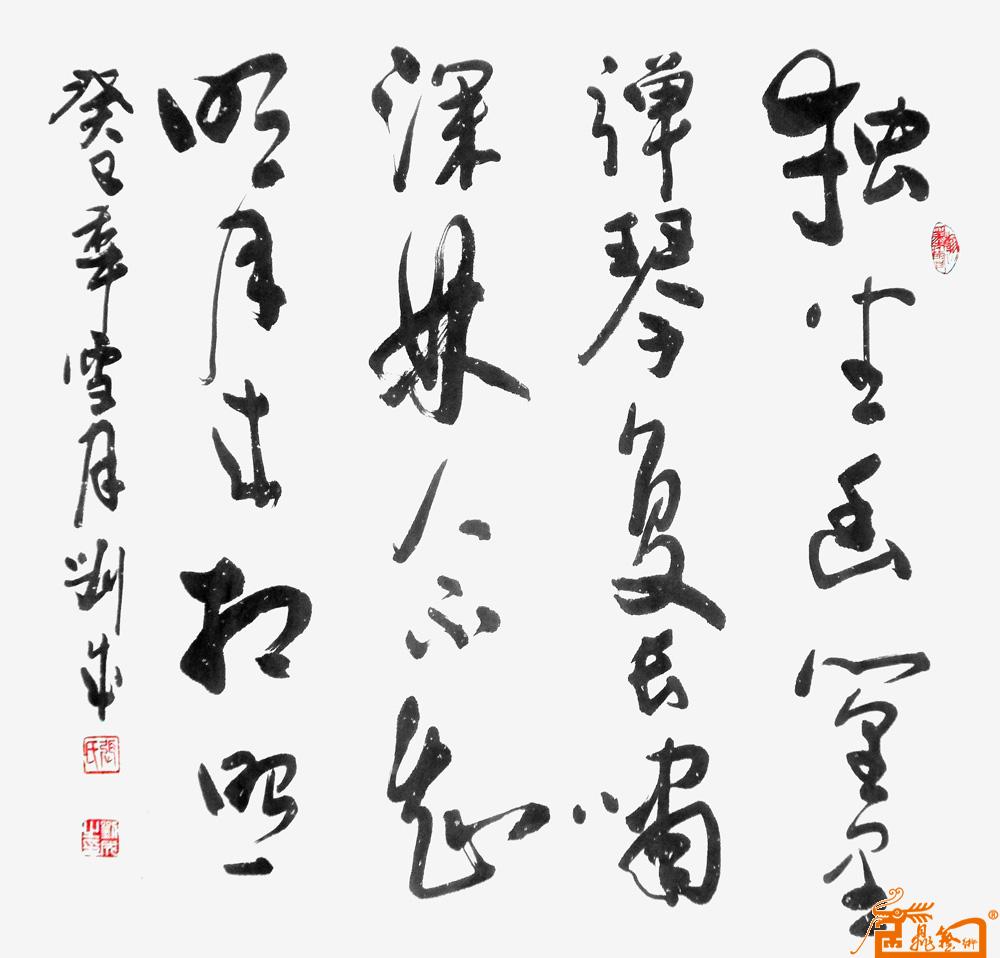 独坐幽篁里
弹琴复長嘯
深林人不知
明月来相照
癸巳年雪月
張氏